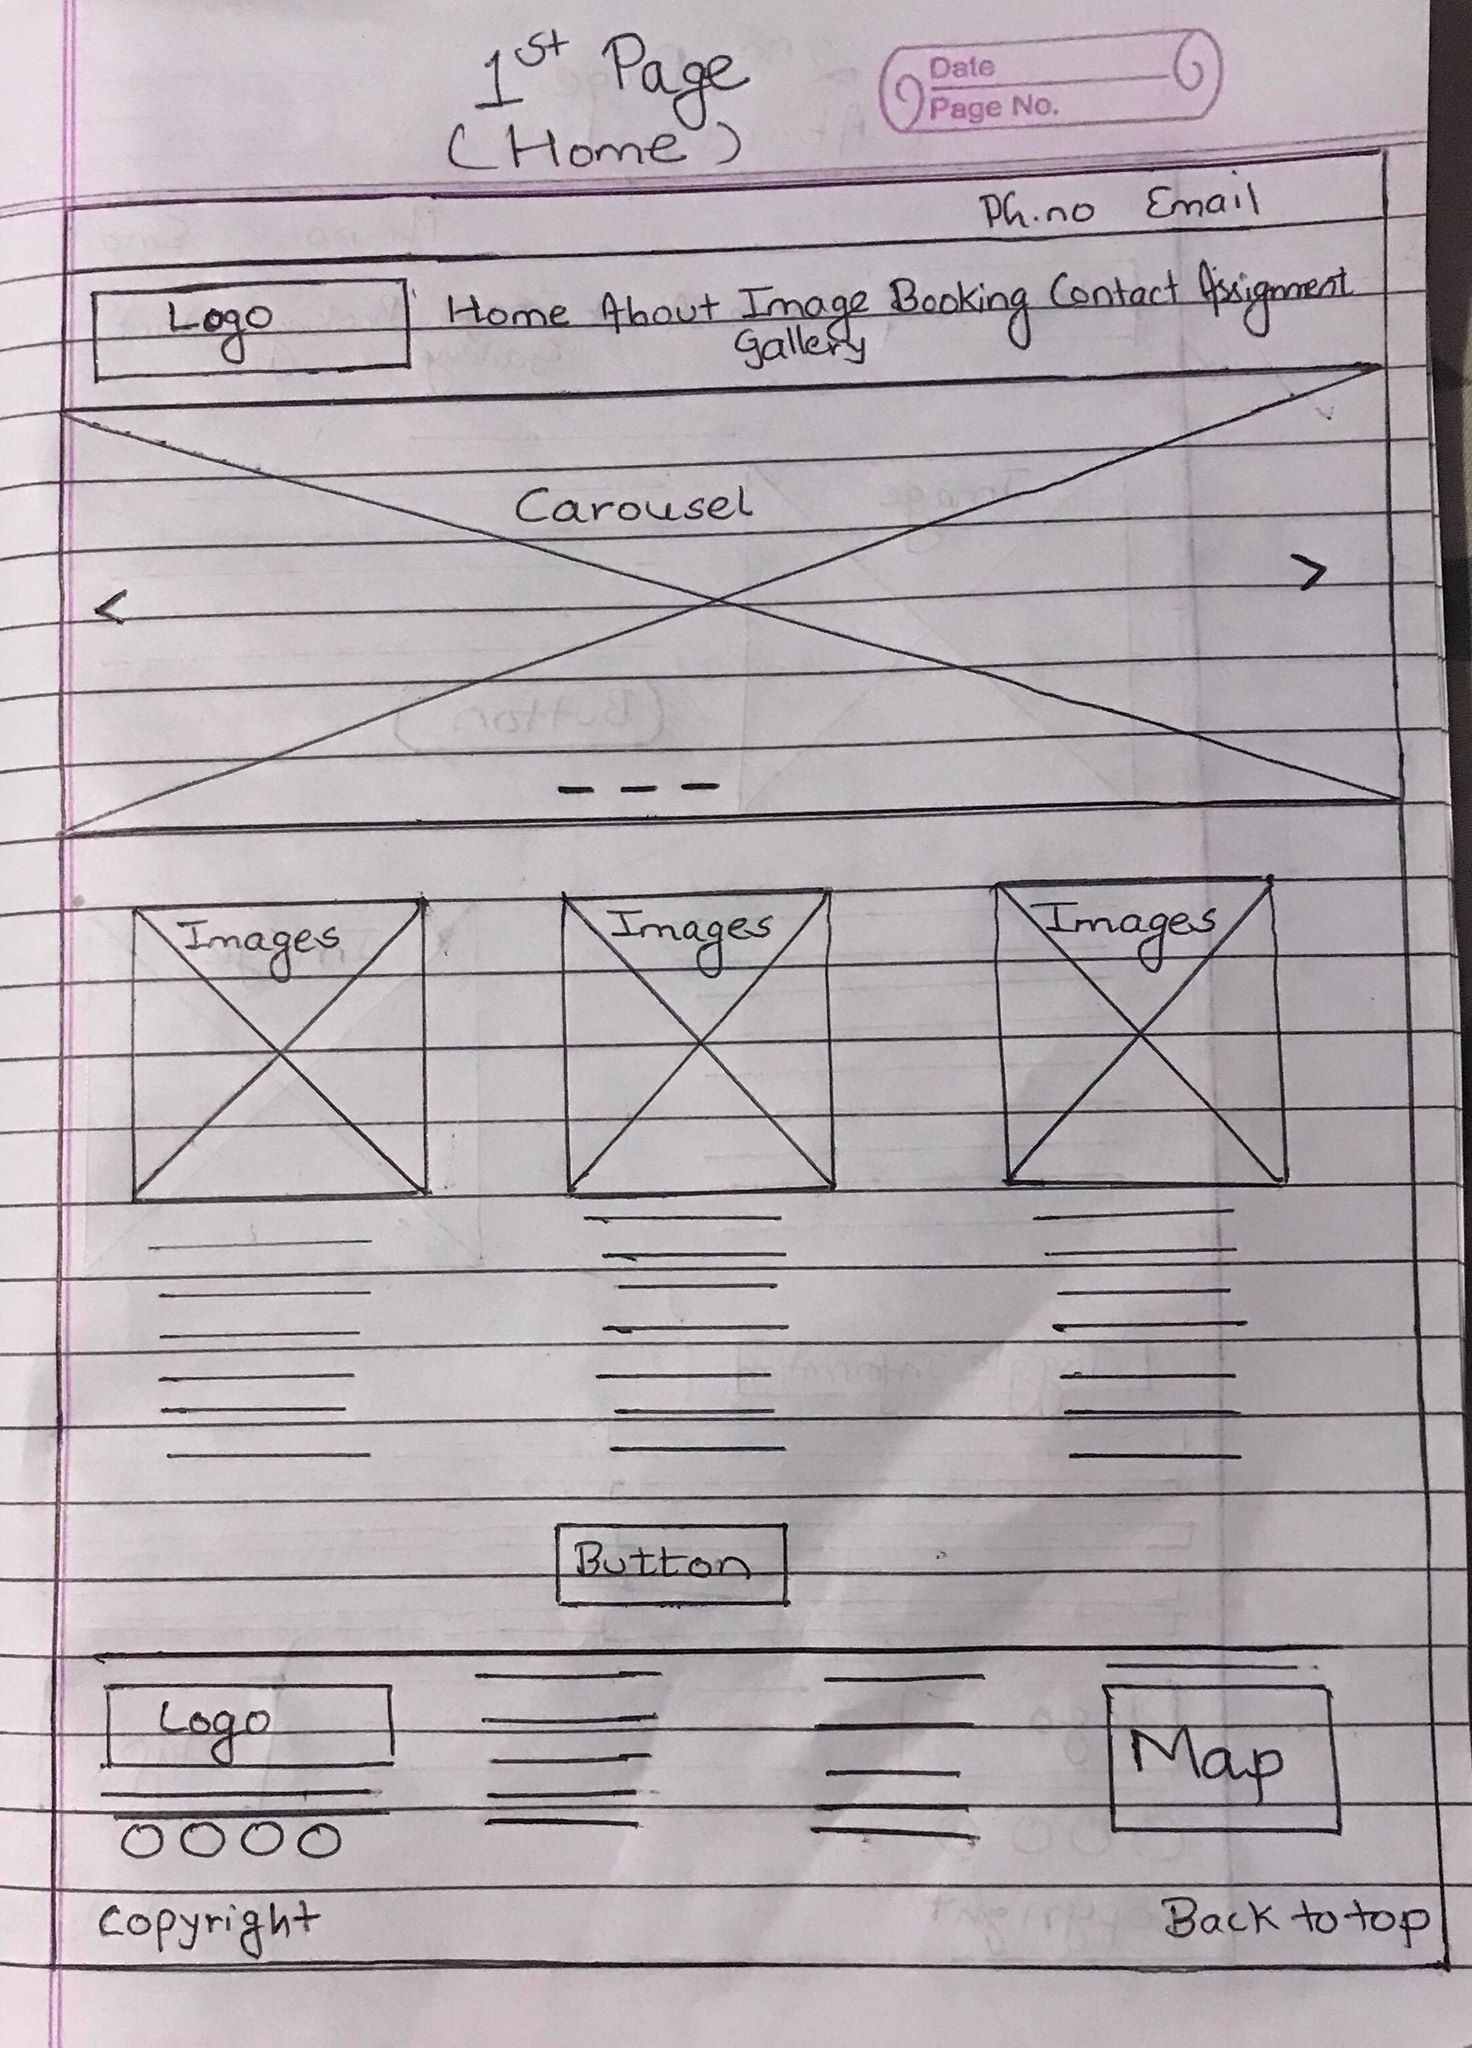 1st Page
(Home)
Date
Page No.
Ph.no Email
Logo
Home About Image Booking Contact Assignment
Gallery
Carousel
< >
Images Images Images
Button
Logo
Map
Copyright Back to top